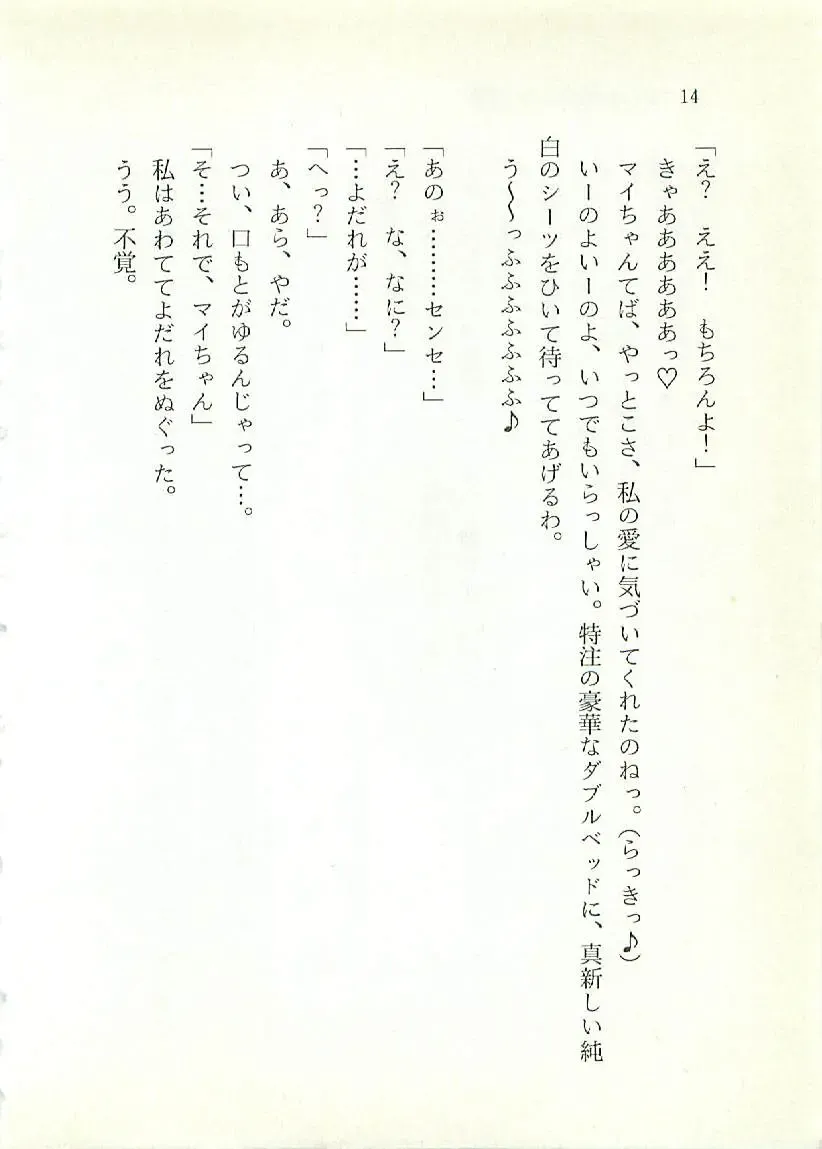 14
「え?　ええ!　もちろんよ!」
きゃああああああっ♡
マイちゃんてば、やっとこさ、私の愛に気づいてくれたのねっ。(らっきっ♪)
いーのよいーのよ、いつでもいらっしゃい。特注の豪華なダブルベッドに、真新しい純
白のシーツをひいて待っててあげるわ。
う〜〜っふふふふふふふ♪
「あのぉ………センセ…」
「え?　な、なに?」
「…よだれが……」
「へっ?」
あ、あら、やだ。
つい、口もとがゆるんじゃって…。
「そ…それで、マイちゃん」
私はあわててよだれをぬぐった。
うう。不覚。